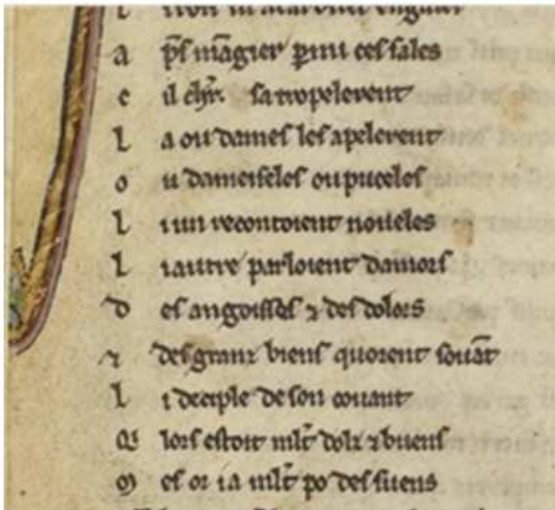 a p̃s mãgier ꝑmi ces sales
c il chlr̃ satropelerent
l a ou dames les apelerent
o u dameiseles ou puceles
l i un recontoient noueles
l i autre parloient damors
d es angoisses ⁊ des dolors
⁊ des granz biens quorent souãt
l i deciple de son couant
Q̇ lors estoit ml̃t dolz ⁊ buens
m es or i a ml̃t po des suens